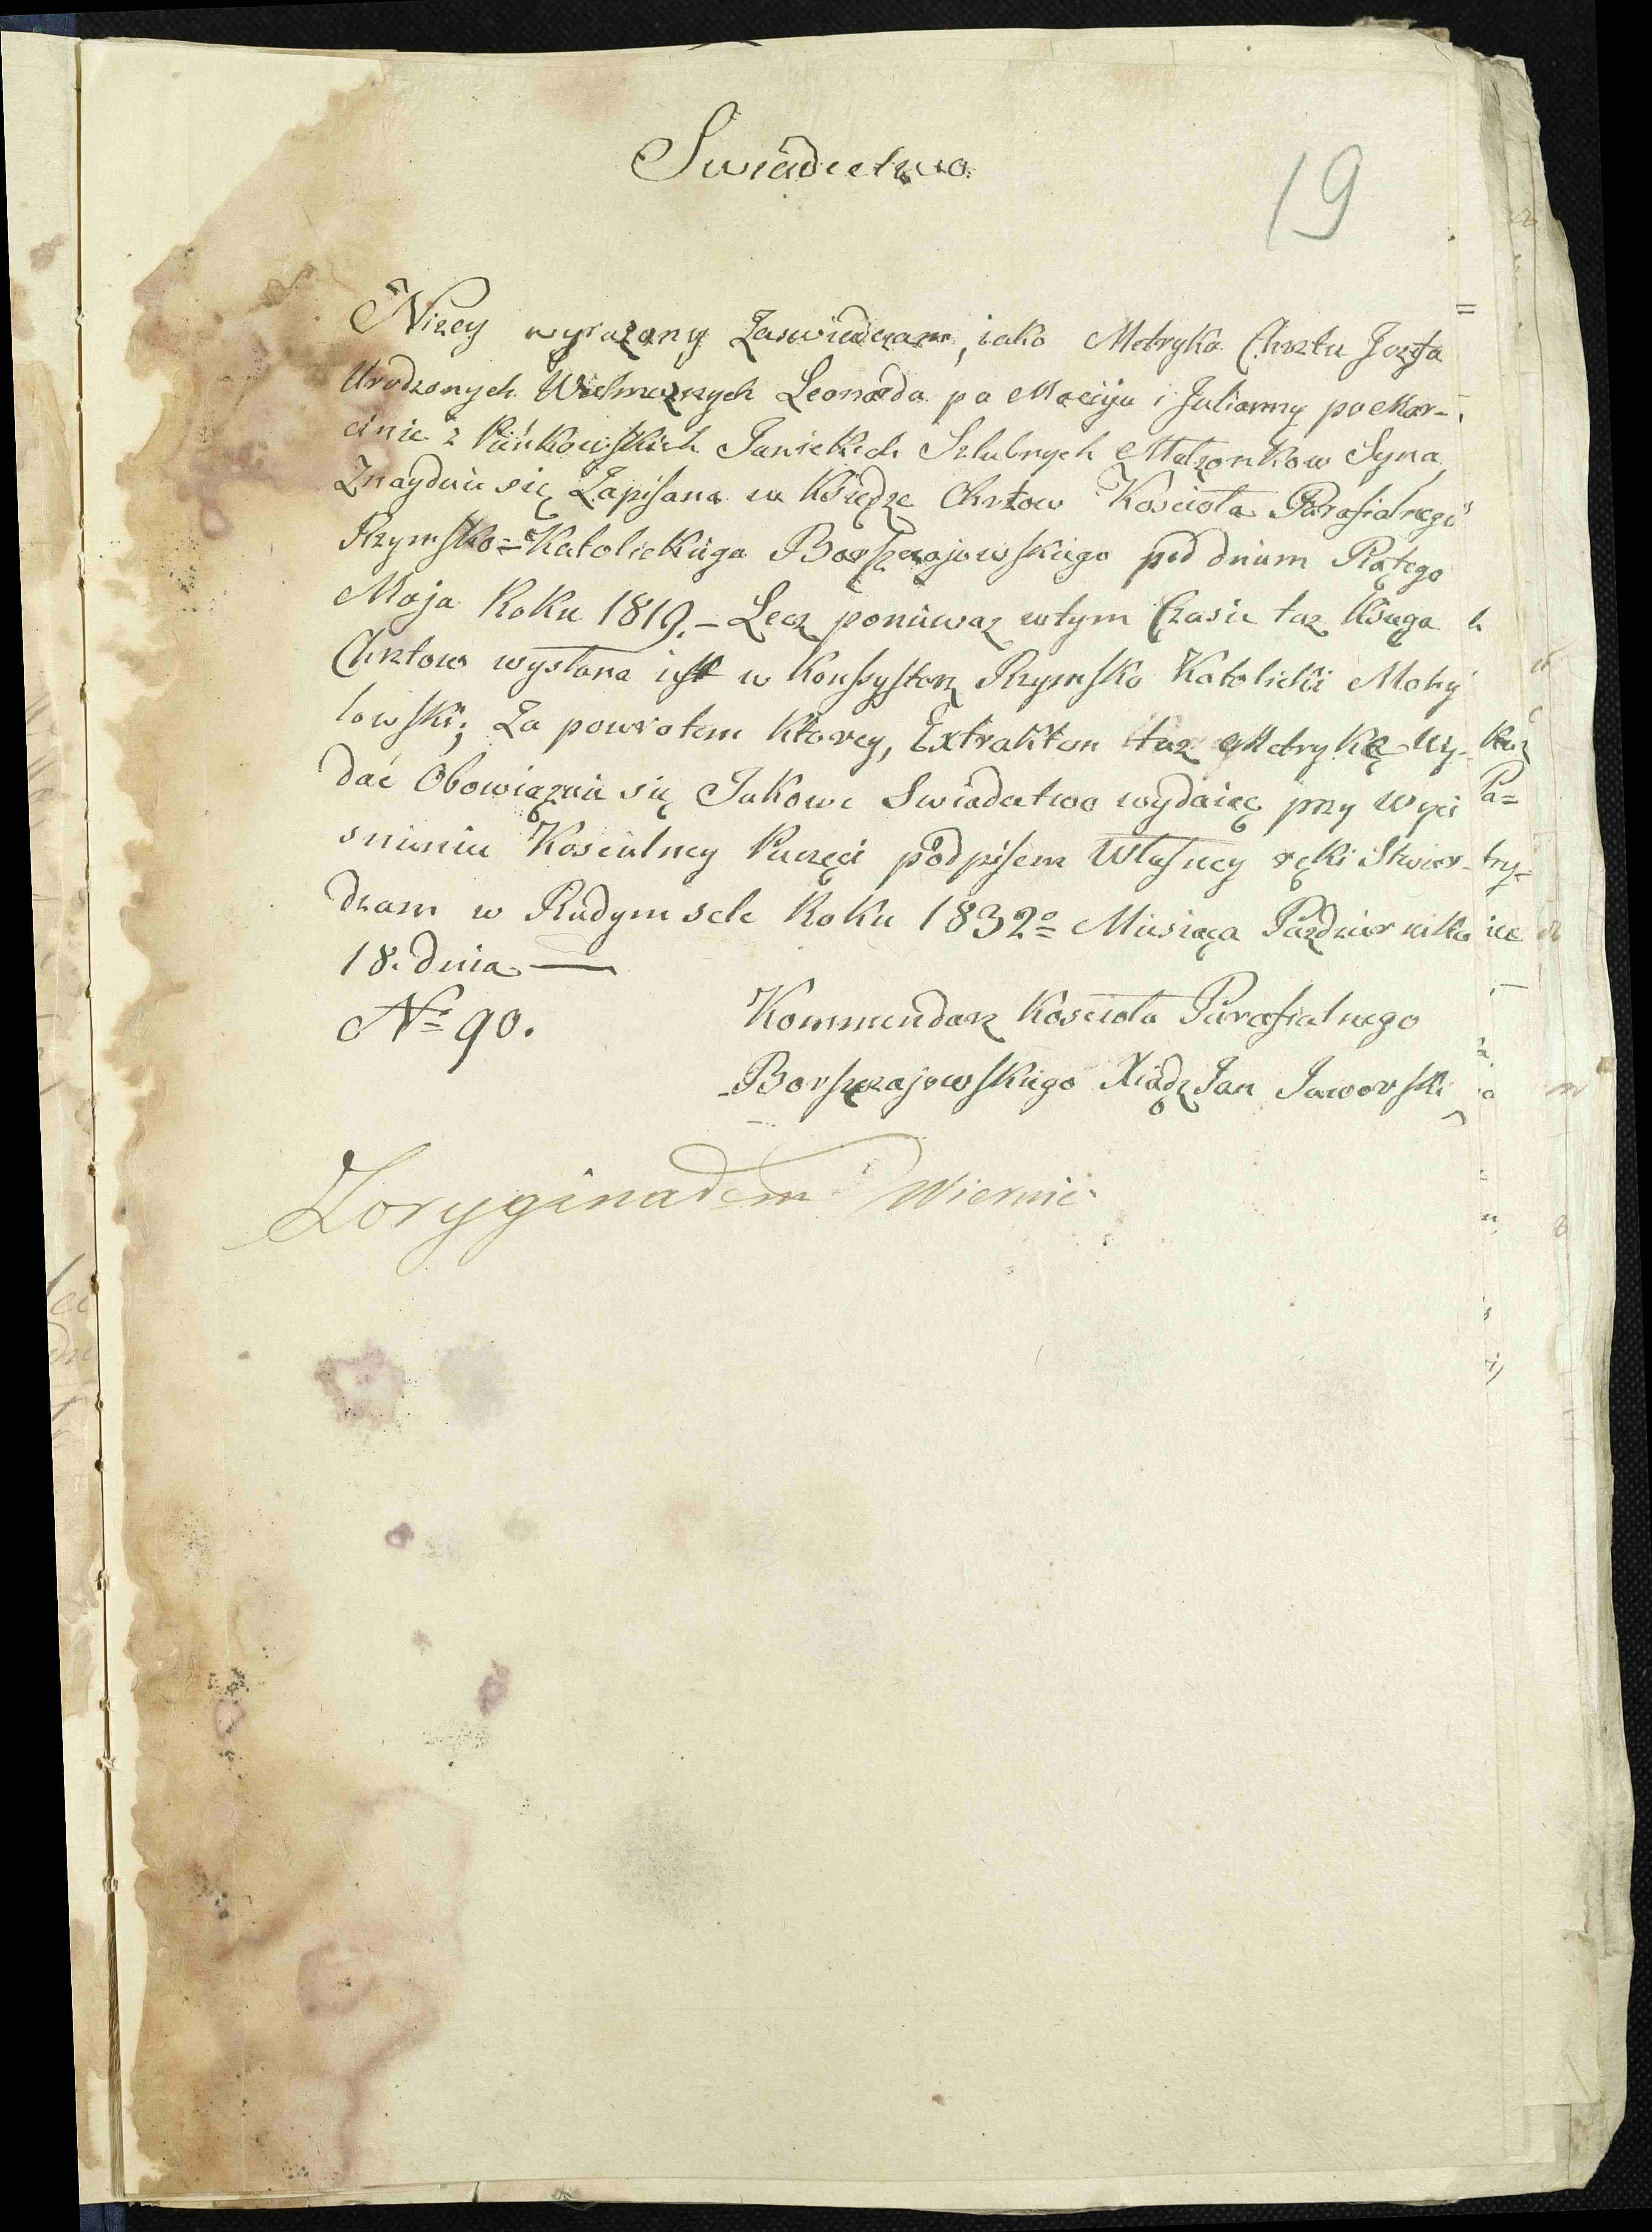 Swiadectwo.
19
Nizey wyrazony Zaswiadczam, iako Metryka Chrztu Jozefa
Urodzonych Wielmoznych Leonarda po Macieju i Julianny po Mar-
cinie z Pańkowskich Janickich Szlubnych Małzonkow Syna,
Znayduie się Zapisana w Księdze Chrztow Kościoła Parafialnego
Rzymsko=Katolickiego Borszczajowskiego pod dniem Piątego
Maja Roku 1819.- Lecz poniewaz w tym Czasie taz Ksiega
Chrztow wysłana iest w Konsystorz Rzymsko Katolicki Mohy
lowski; Za powrotem Ktorey, Extraktem taz Metrykę wy-
dać Obowiązuie się Jakowe Swiadectwo wydaiąc przy Wyci
snieniu Koscielney Pieczęci podpisem Własney ręki Stwier-
dzam w Rudym sele Roku 1832o= Miesiąca Pazdziernika
18. dnia. —
No= 90.
Kommendarz Kościoła Parafialnego
Borszczajowskiego Xiądz Jan Jaworski
Zoryginałem Wiernie.